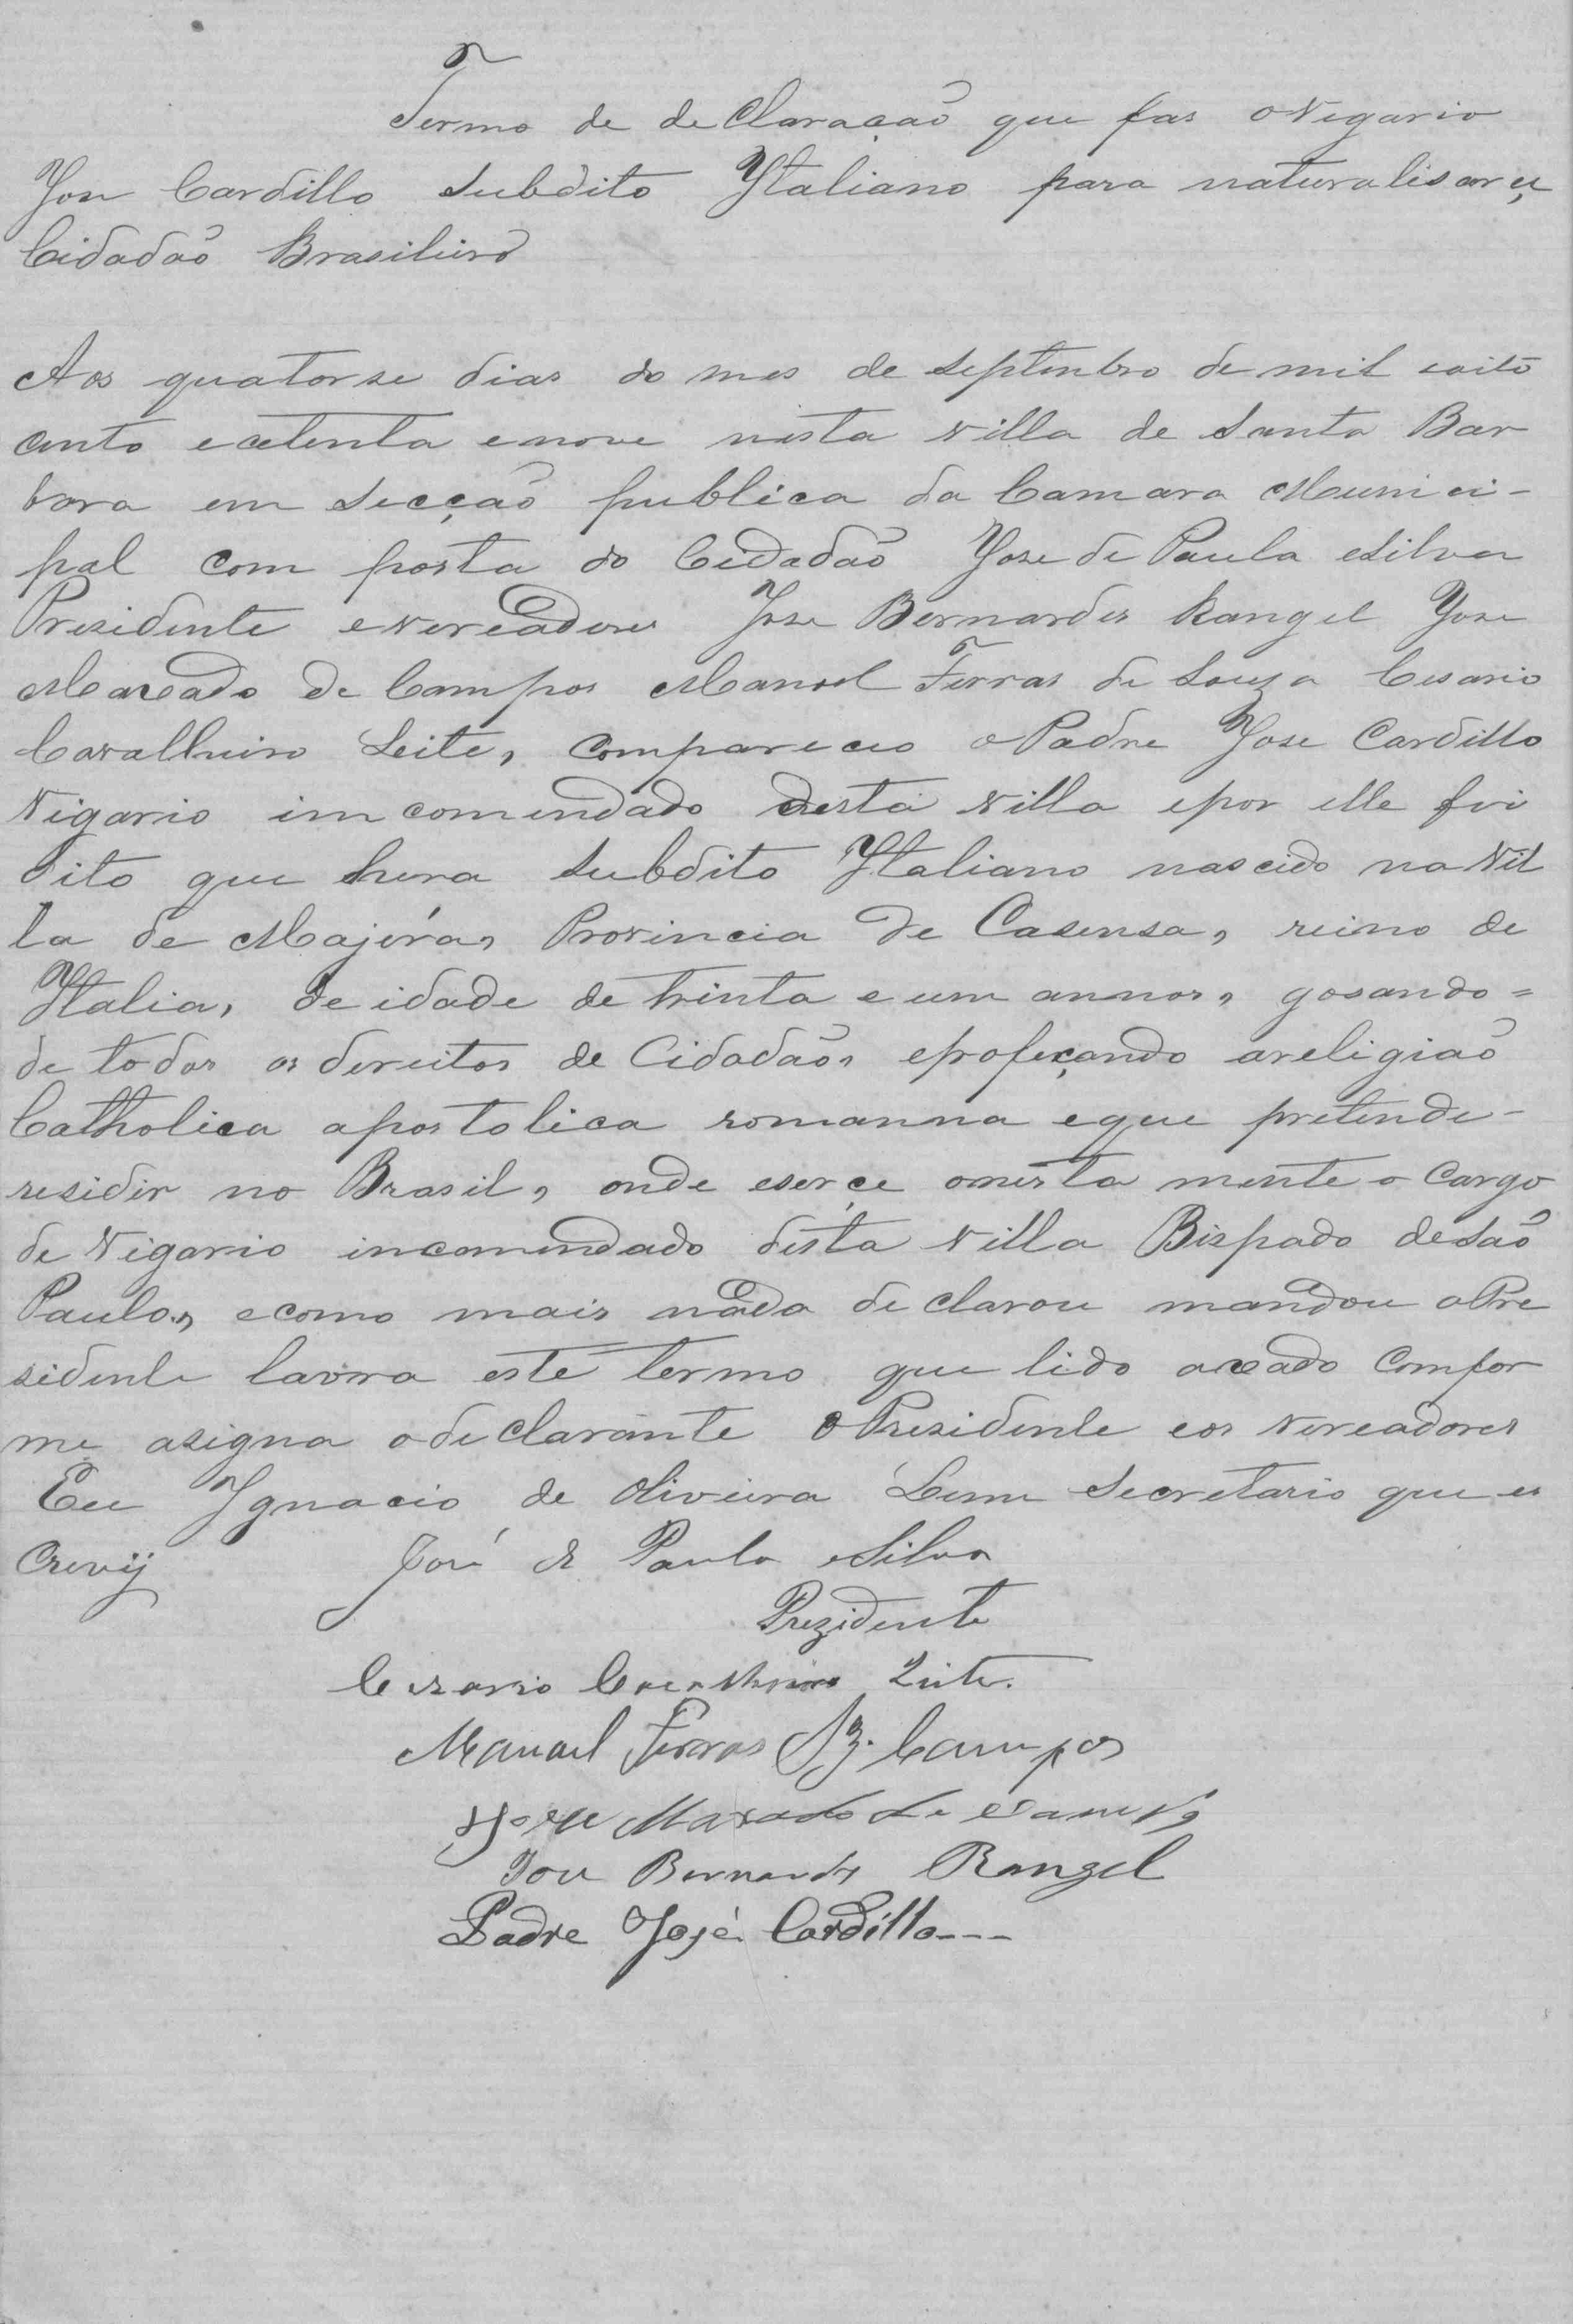 Termo de de Claração que fas o Vigario
Jose Cardillo Subdito Ytaliano para naturalisarçe
Cidadão Brasileiro
Aos quatorse dias do mes de Septembro de mil eoito
cento e cetenta enove nesta Villa de Santa Bar
bara em Secção publica da Camara Munici-
pal com posta do Cidadão Jose de Paula eSilva
Presidente eVereadores Jose Bernardes Rangel Jose
Maxado de Campos Manoel Ferras de Souza Cesario
Cavalheiro Leite, Compareceo o Padre Jose Cardillo
Vigario imcomendado desta Villa epor elle foi
dito que hera Subdito Ytaliano nascido na Vil
la de Majerá, Provincia de Casensa, reino de
Ytalia, de idade de trinta e um annos, gosando =
de todos os dereitos de Cidadão, eprofeçando areligião
Catholica apostolica romanna eque pretende-
residir no Brasil, onde eserçe onesta mente o Cargo
de Vigario incomendado désta Villa Bispado deSão
Paulo, ecomo mais nada de clarou mandou oPre
sidente lavra este termo que lido axado Comfor
me asigna ode Clarante o Presidente eos Vereadores
Eu Ygnacio de Oliveira Leme Secretario que es
Crevij José de Paula eSilva
Prezidente
Cezario Cavalheiro Leite.
Manuel Ferras Sz. Campos
Jose Maxado de Campos
Jose Bernardes Rangel
Padre José Cardillo---